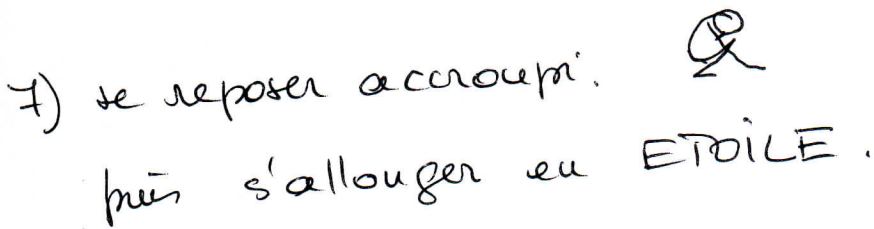 7) se reposer accroupi.
puis s'allonger en ETOILE.